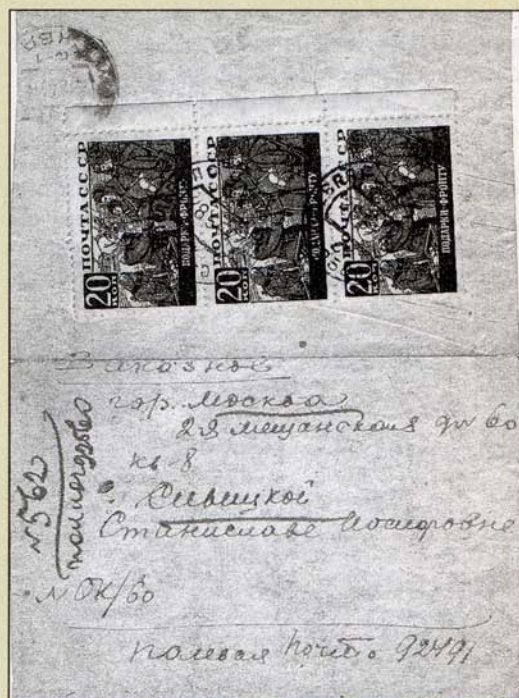 ПОЧТА СССР
20 КОП
ПОДАРКИ-ФРОНТУ
ПОЧТА СССР
20 КОП
ПОДАРКИ-ФРОНТУ
ПОЧТА СССР
20 КОП
ПОДАРКИ-ФРОНТУ
Заказное
гор. Москва
2я мещанская 60
кв 8
Станиславе Иосифовне
N 562
N ОК/60
полевая почта 92491